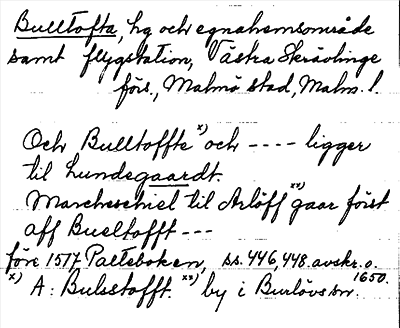 Bulltofta, hg och egnahemsområde
samt flygstation, Västra Skrävlinge
förs., Malmö stad, Malm. l.
Och Bulltoffte x) och ---- ligger
til Lundsgaardt.
Marcheschiel til Arlöff xx) gaar först
aff Bueltofft ---
före 1517 Palteboken, ss. 446, 448. avskr. o. 1650.
x) A: Bulsstofft. xx) by i Burlövs sn.